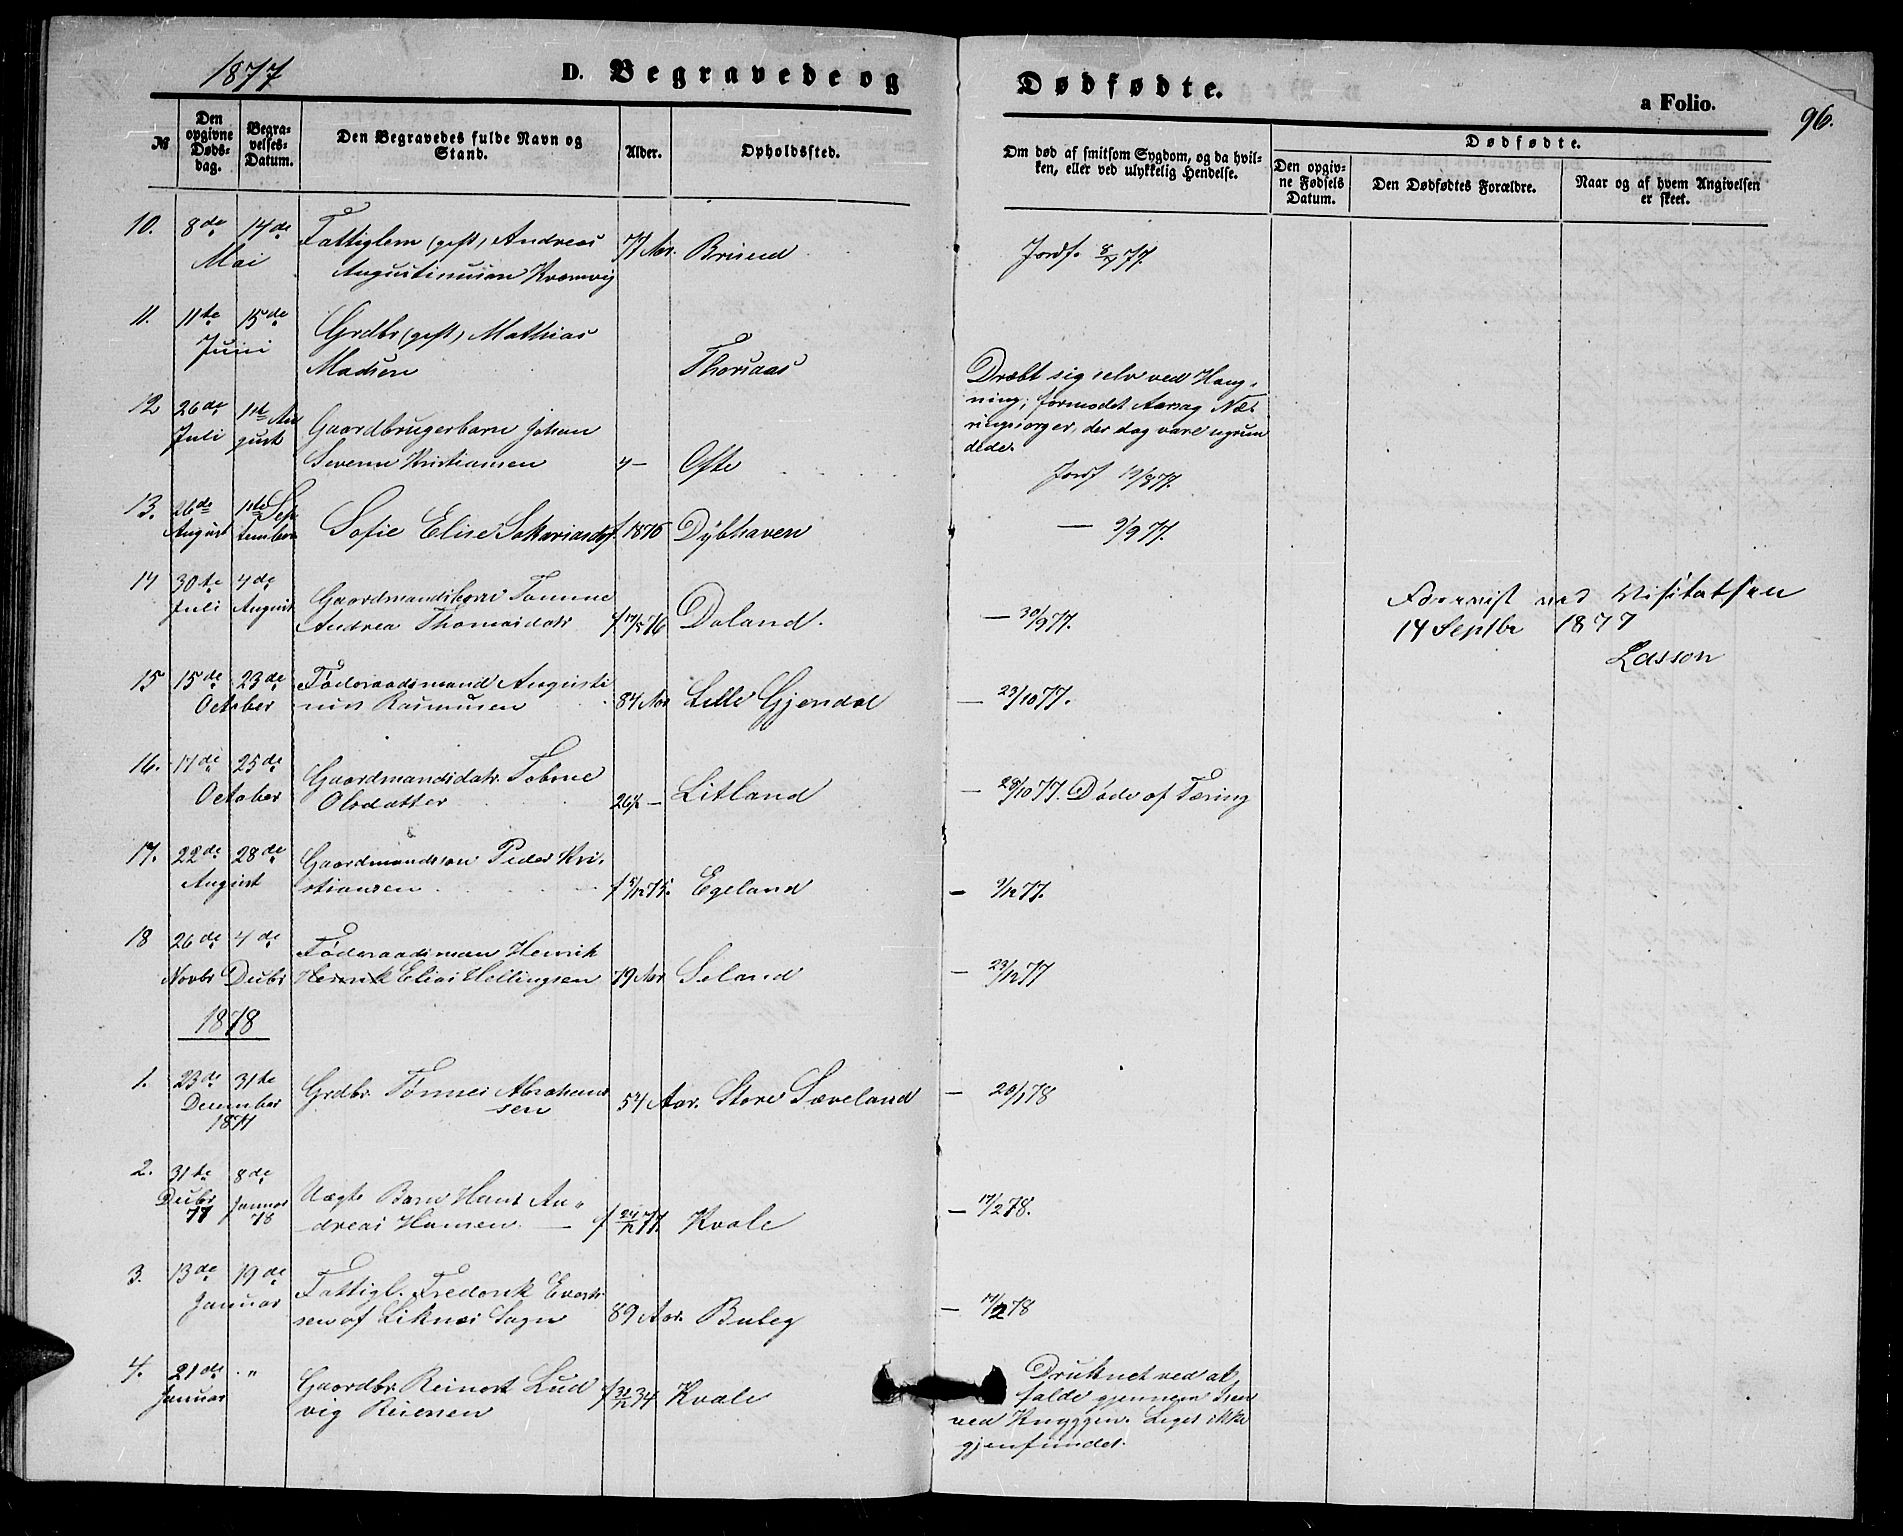 1877
D. Begravede og Dødfødte.
a Folio. 96.
№
Den opgivne Døds-dag.
Begra-velses-Datum.
Den Begravedes fulde Navn og Stand.
Alder.
Opholdssted.
Om død af smitsom Sygdom, og da hvil-
ken, eller ved ulykkelig Hendelse.
Dødfødte.
Den opgiv-ne Fødsels Datum.
Den Dødfødtes Forældre.
Naar og af hvem Angivelsen er skeet.
10. 8de 14de Fattiglem (gift) Andreas
Mai Augustinusen Kvamvig 77 Aar. Briseid Jordf. 8/7 77.
11. 11te 15de Grdbr (gift) Mathias
Juni
Madsen Thorsaas Dræbt sig selv ved Hæng-
ning; formodet Aarsag Næ-
ringssorger, der dog vare ugrun
dede.
12 26de 1ste Au
Juli gust Gaardbrugerbarn Johan
Severin Kristiansen 4 — Ofte Jordf 19/8 77.
13. 26de 1ste Sep
August tember Sofie Elise Sakariasdtr f. 1876 Dybhaven — 9/9 77.
14 30te 4de Gaardmandsbarn Tomine
Juli August Andrea Thomasdatr f 17/5 76 Daland. — 30/9 77.
Foreviist ved Visitatsen
14 Septbr 1877
Lasson
15 15de 23de Føderaadsmand Augusti
October nus Rasmusen 84 Aar Lille Gjendal — 23/10 77.
16. 17de 25de Gaardmandsdatr. Tobine
October Olsdatter 26½ — Litland — 28/10 77. Døde af Tæring
17. 22de 28de Gaardmandssøn Peder Kri-
August stiansen f 5/12 75. Egeland — 9/12 77.
18 26de 4de Føderaadsman Henrik
Novbr Decbr Henrik Elias Hellingsen 79 Aar Seland — 23/12 77
1878
1. 23de 31te Grdbr. Tønnes Abraham
December sen 54 Aar. Store Sæveland — 20/1 78
1877
2. 31te 8de
Decbr Januar Uægte Barn Hans An-
77 78 dreas Hansen — f 24/12 77. Kvale — 17/2 78.
3. 13de 19de Fattigl. Fredrik Evert
Januar sen af Liknes Sogn 89 Aar. Buleg — 17/2 78
4. 21de . " Gaardbr. Reinert Lud
Januar vig Reiersen f 31/12 34 Kvale Druknet ved at
falde gjennem Isen
ved Knyggen. Liget ikke
gjenfundet.